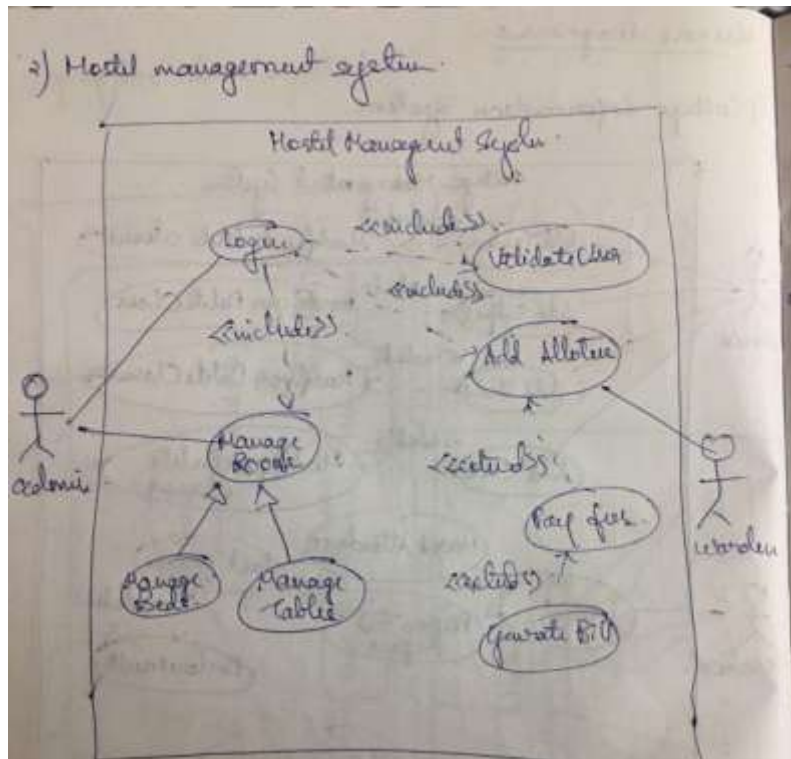 2) Hostel management system.
Hostel Managemet System.
Login
<<include>>
Validate User
<<include>>
<<include>>
Add Allotee
Manage
Rooms
<<extend>>
admin
Pay fees.
warden
Manage
Beds.
Manage
Tables
<<extend>>
Generate Bill